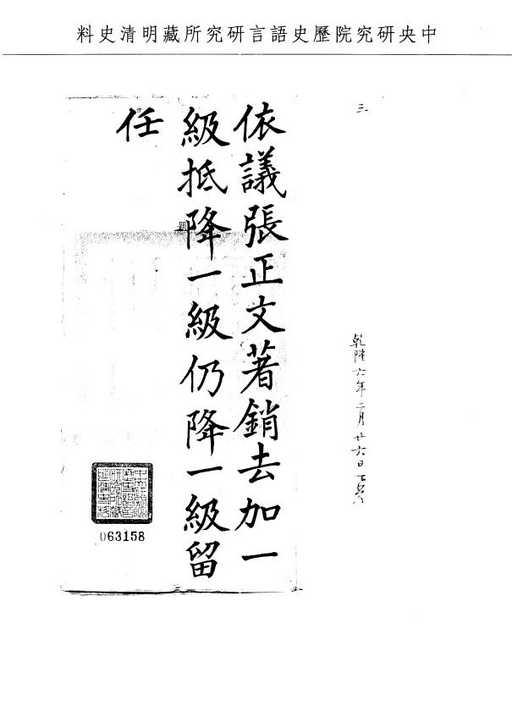 中央研究院歷史語言研究所藏明清史料
三
乾隆六年二月廿六日
依議張正文著銷去加一
級抵降一級仍降一級留
任
063158